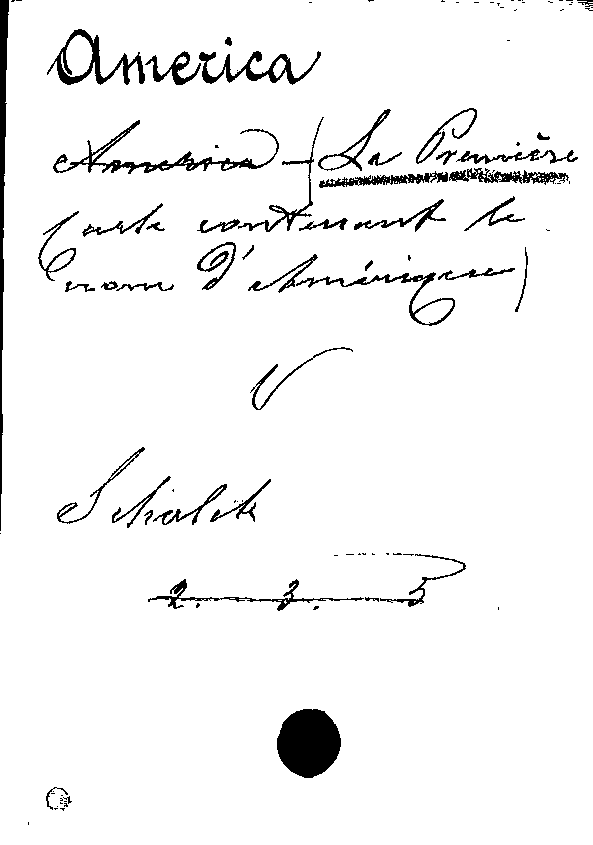 America
America — (La Première
Carte contenant le
nom d'Amérique)
V
Schalck
2. 3. 5